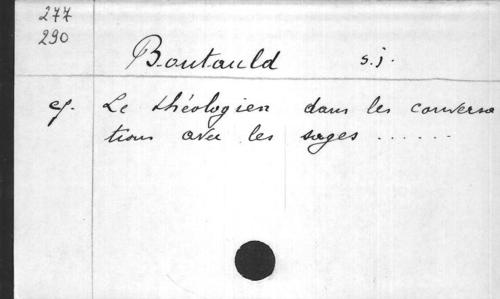 277
290
Boutauld s.j.
cf. Le théologien dans les conversa
tions avec les sages ......